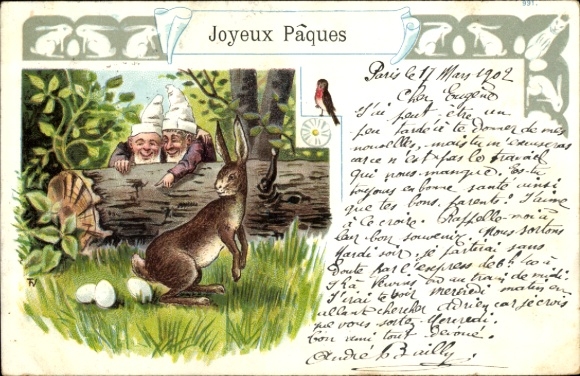 991.
Joyeux Pâques
Paris le 17 Mars 1902
Cher Eugène
J'ai peut-être un
peu tardé à te donner de mes
nouvelles, mais tu m'excuseras
car ce n'est pas le travail
qui nous manque. Es-tu
toujours en bonne santé ainsi
que tes bons parents? J'aime
à le croire. Rappelle-moi à
leur bon souvenir. Nous sortons
Mardi soir, je partirai sans
doute par l'express de
ou au train de midi.
J'irai te voir mercredi matin en
allant chercher Adrien car je crois
que vous sortez Mercredi.
Ton ami tout dévoué.
André